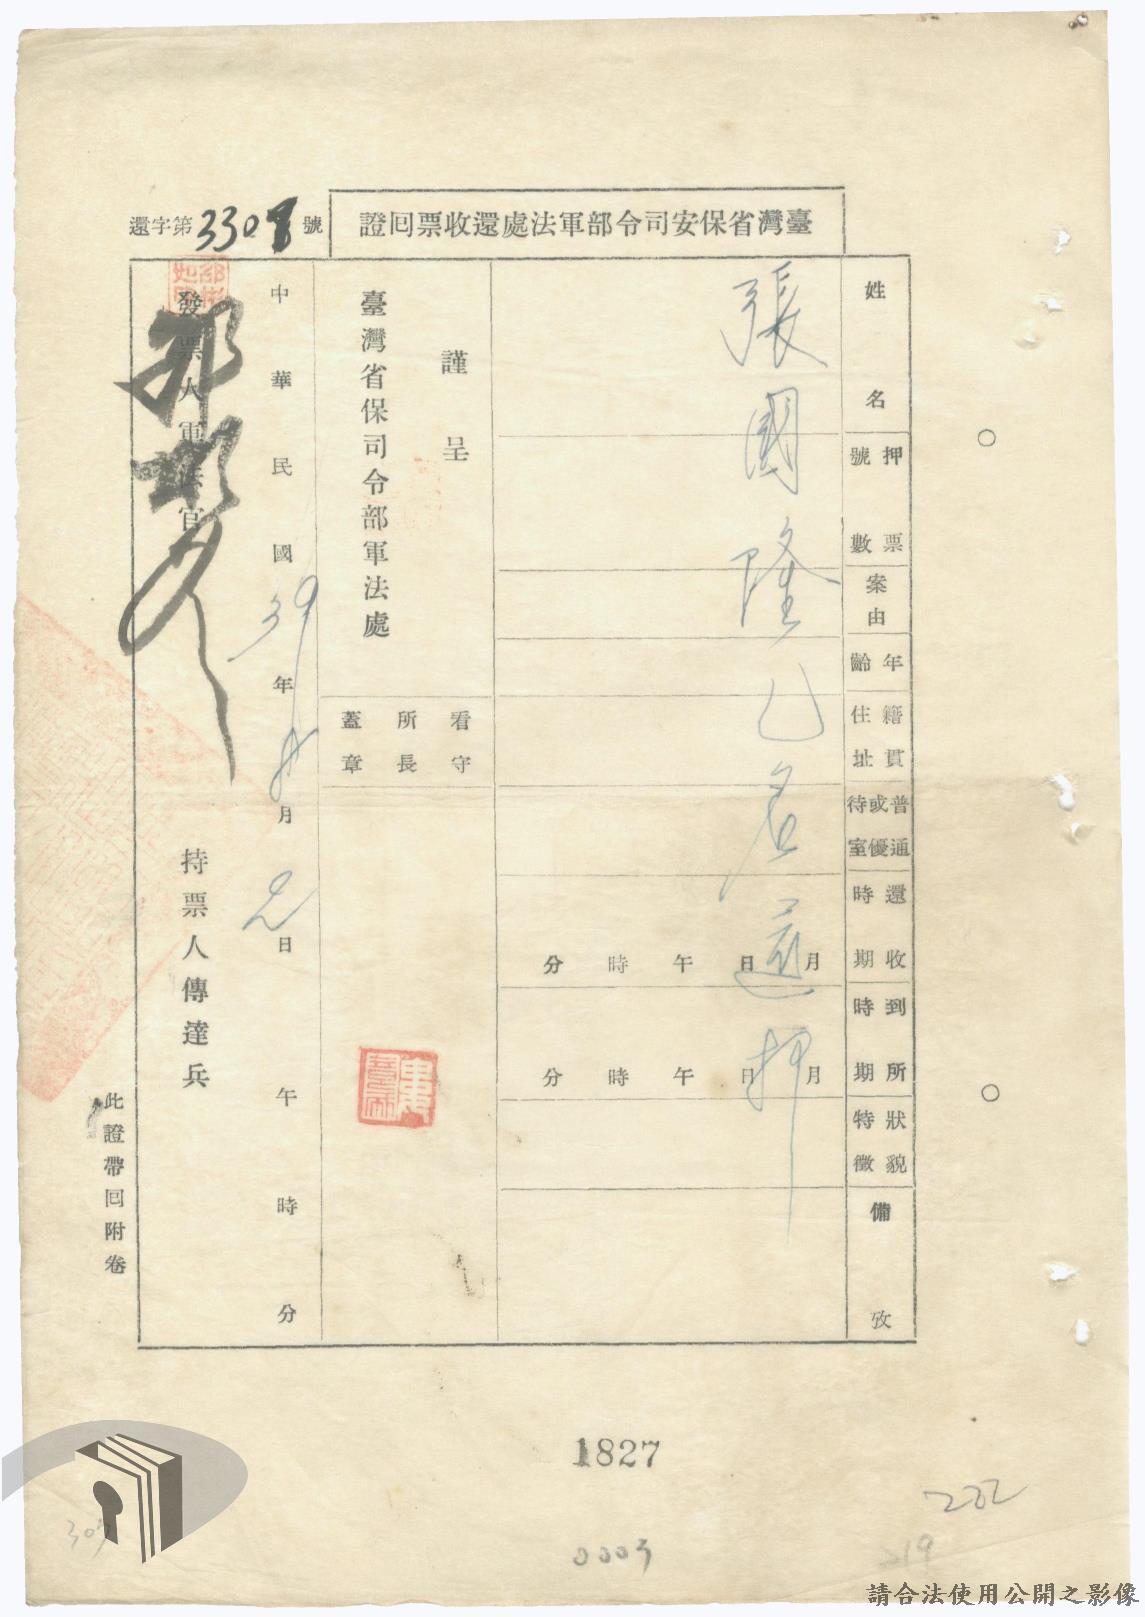 臺灣省保安司令部軍法處還收票回證
還字第3308號
姓名
張國隆乙名還押
押票號數
案由
年齡
籍貫住址
普通或優待室
還收時期
月 日 午 時 分
到所時期
月 日 午 時 分
狀貌特徵
備攷
謹呈
臺灣省保司令部軍法處
看守所長蓋章
中華民國39年 月 日 午 時 分
發票人軍法官
持票人傳達兵
此證帶回附卷
1827
222
0003
219
303
請合法使用公開之影像